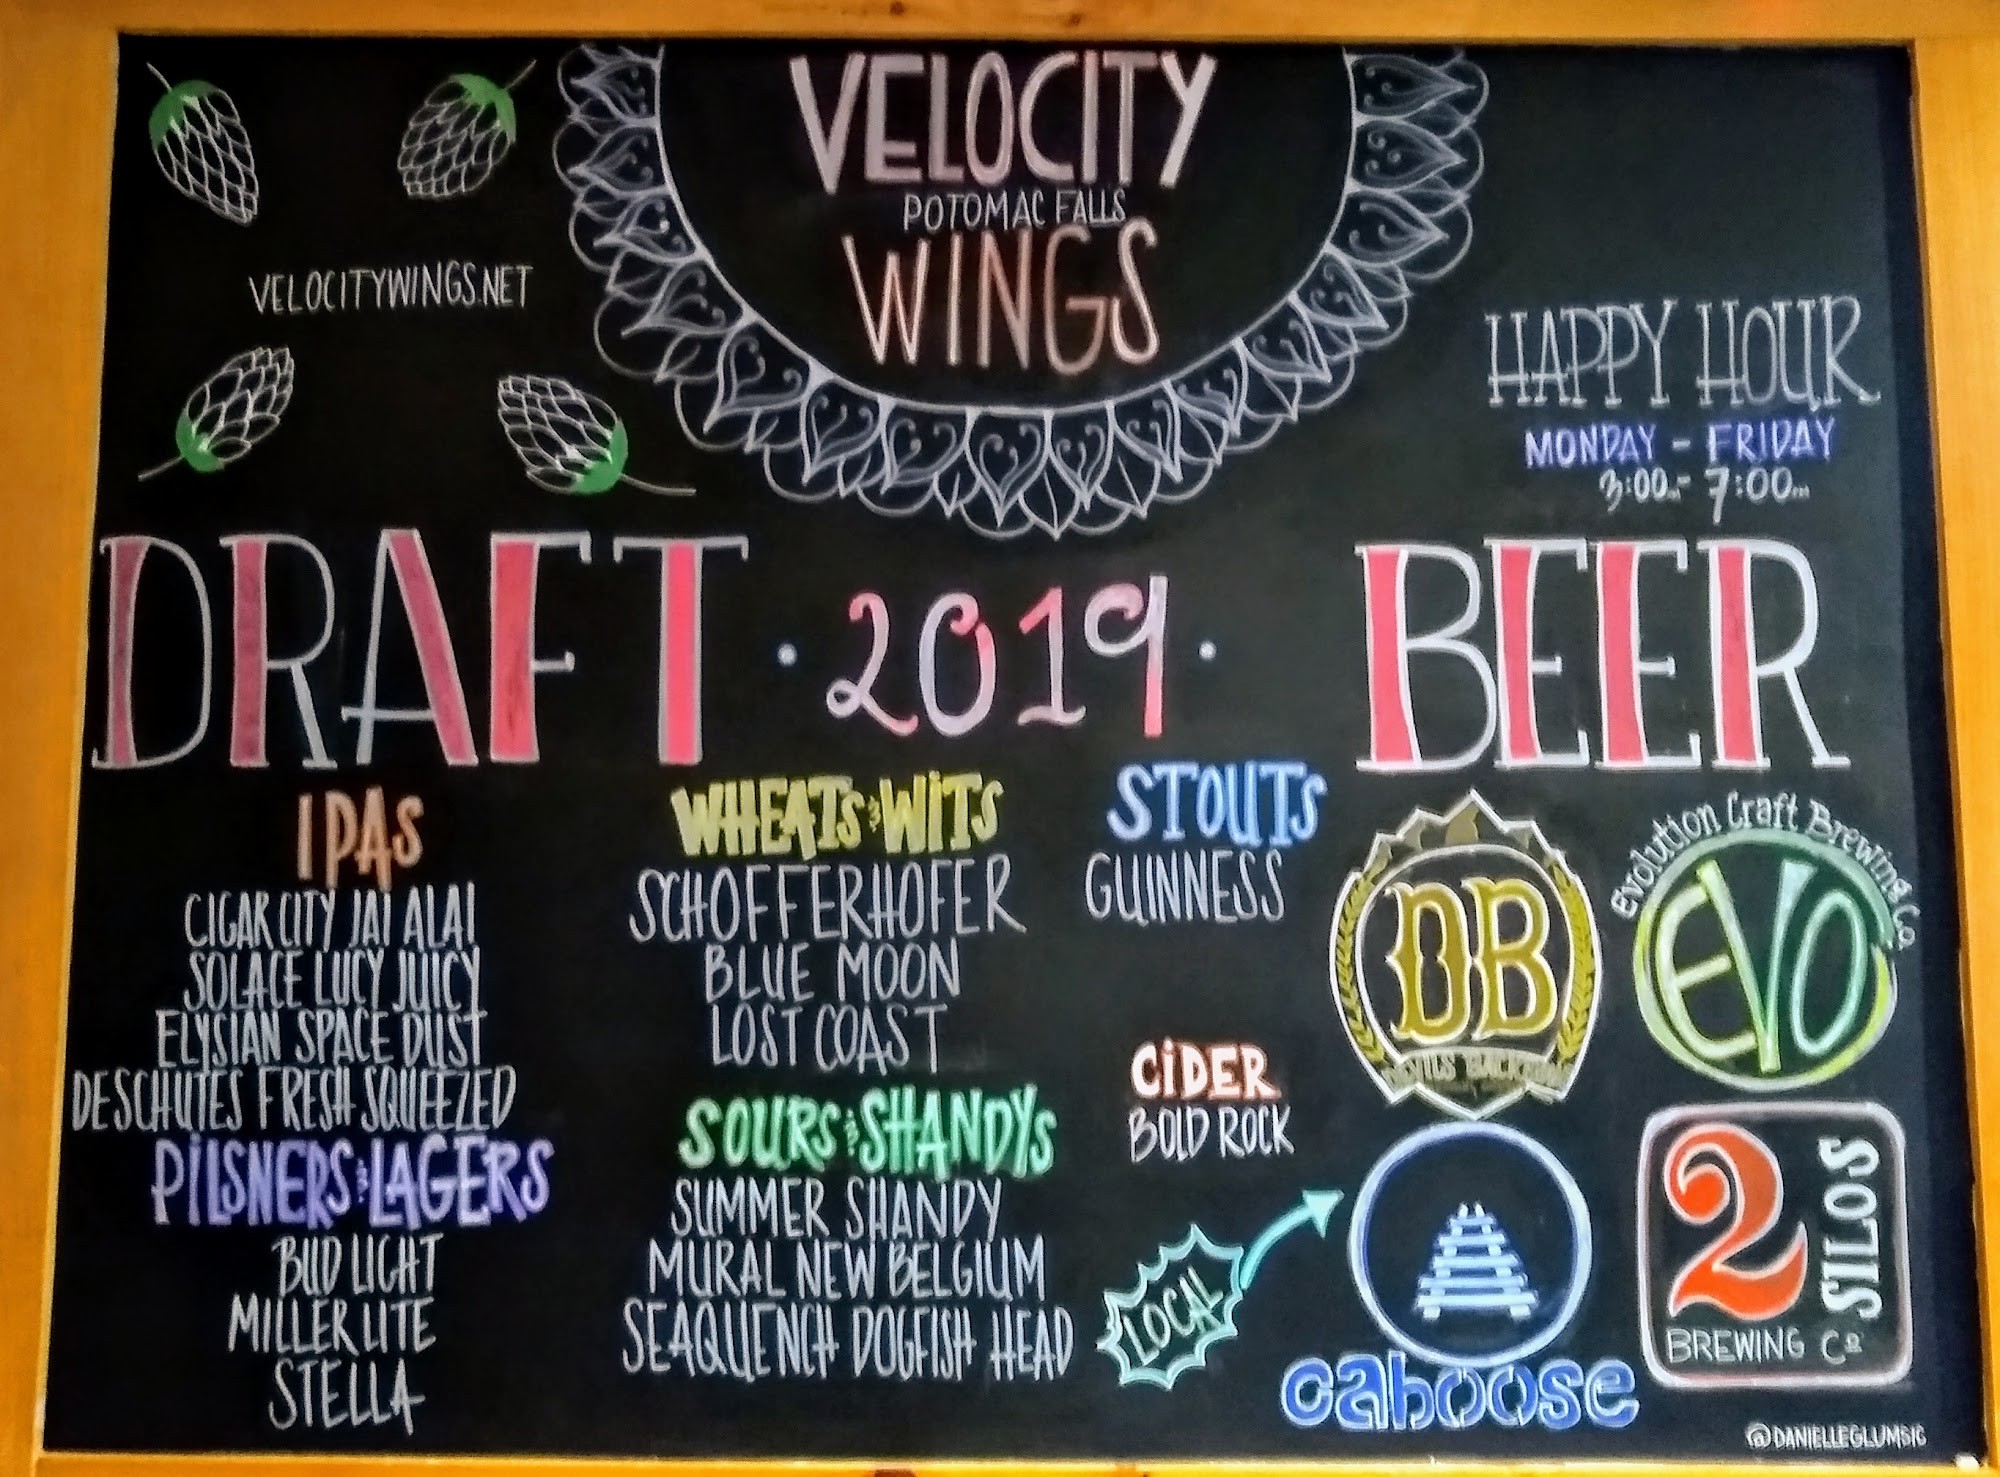 VELOCITY
POTOMAC FALLS
WINGS
VELOCITYWINGS.NET
HAPPY HOUR
MONDAY - FRIDAY
3:00PM- 7:00PM
DRAFT · 2019 · BEER
IPAS
CIGAR CITY JAI ALAI
SOLACE LUCY JUICY
ELYSIAN SPACE DUST
DESCHUTES FRESH SQUEEZED
PILSNERS & LAGERS
BUD LIGHT
MILLER LITE
STELLA
WHEATS & WITS
SCHOFFERHOFER
BLUE MOON
LOST COAST
SOURS & SHANDYS
SUMMER SHANDY
MURAL NEW BELGIUM
SEAQUENCH DOGFISH HEAD
STOUTS
GUINNESS
CIDER
BOLD ROCK
LOCAL
DB
DEVILS BACKBONE
Evolution Craft Brewing Co.
EVO
caboose
2 SILOS
BREWING CO
@DANIELLEGLUMSIC